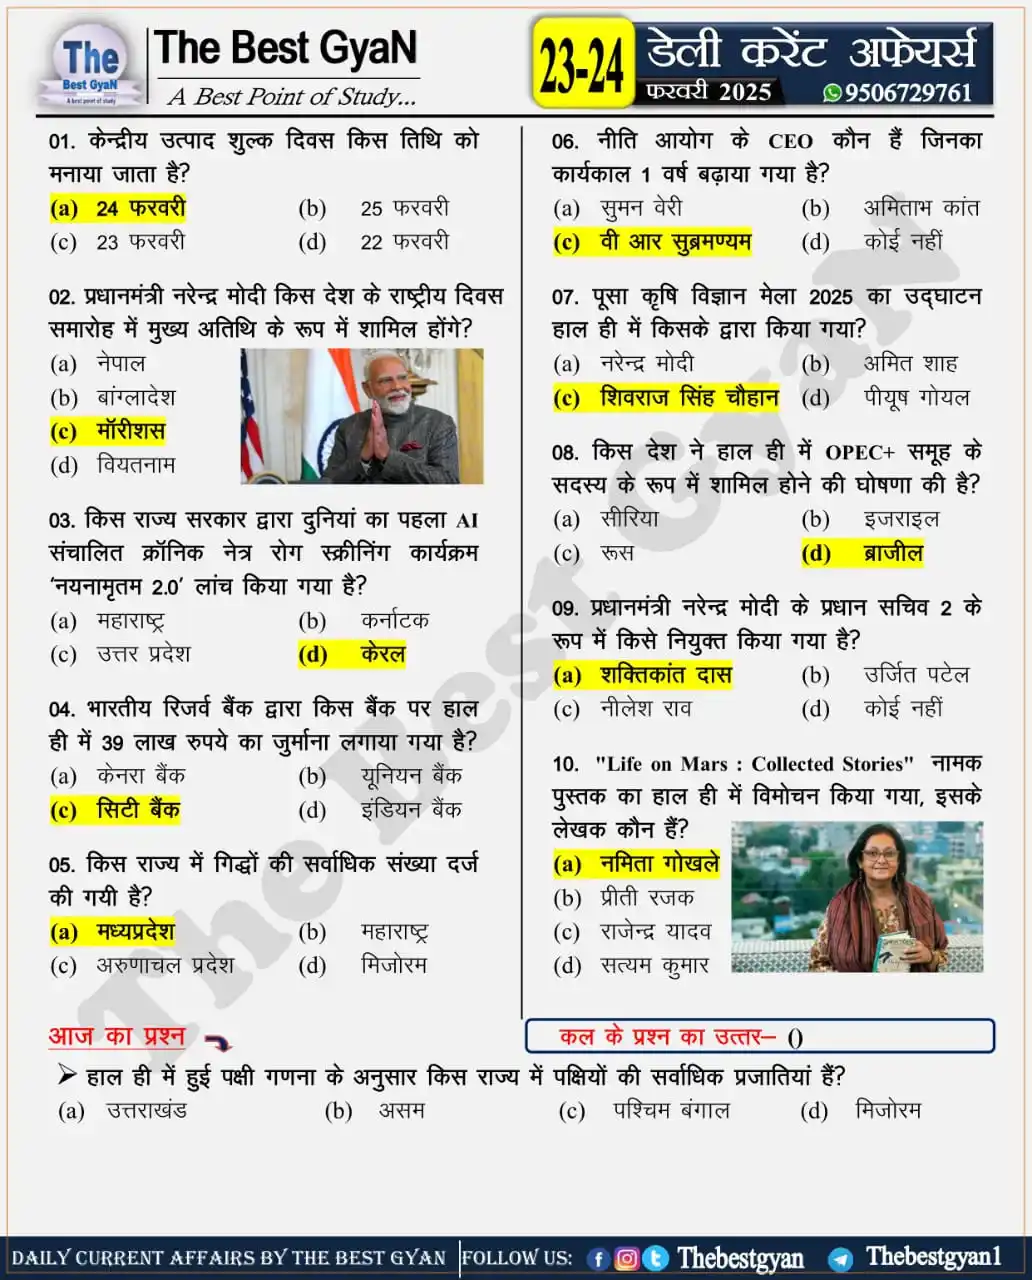 The
Best GyaN
A best point of study
The Best GyaN
A Best Point of Study...
23-24
डेली करेंट अफेयर्स
फरवरी 2025
9506729761
01. केन्द्रीय उत्पाद शुल्क दिवस किस तिथि को
मनाया जाता है?
(a) 24 फरवरी (b) 25 फरवरी
(c) 23 फरवरी (d) 22 फरवरी
02. प्रधानमंत्री नरेन्द्र मोदी किस देश के राष्ट्रीय दिवस
समारोह में मुख्य अतिथि के रूप में शामिल होंगे?
(a) नेपाल
(b) बांग्लादेश
(c) मॉरीशस
(d) वियतनाम
03. किस राज्य सरकार द्वारा दुनियां का पहला AI
संचालित क्रॉनिक नेत्र रोग स्क्रीनिंग कार्यक्रम
‘नयनामृतम 2.0’ लांच किया गया है?
(a) महाराष्ट्र (b) कर्नाटक
(c) उत्तर प्रदेश (d) केरल
04. भारतीय रिजर्व बैंक द्वारा किस बैंक पर हाल
ही में 39 लाख रुपये का जुर्माना लगाया गया है?
(a) केनरा बैंक (b) यूनियन बैंक
(c) सिटी बैंक (d) इंडियन बैंक
05. किस राज्य में गिद्धों की सर्वाधिक संख्या दर्ज
की गयी है?
(a) मध्यप्रदेश (b) महाराष्ट्र
(c) अरुणाचल प्रदेश (d) मिजोरम
06. नीति आयोग के CEO कौन हैं जिनका
कार्यकाल 1 वर्ष बढ़ाया गया है?
(a) सुमन वेरी (b) अमिताभ कांत
(c) वी आर सुब्रमण्यम (d) कोई नहीं
07. पूसा कृषि विज्ञान मेला 2025 का उद्घाटन
हाल ही में किसके द्वारा किया गया?
(a) नरेन्द्र मोदी (b) अमित शाह
(c) शिवराज सिंह चौहान (d) पीयूष गोयल
08. किस देश ने हाल ही में OPEC+ समूह के
सदस्य के रूप में शामिल होने की घोषणा की है?
(a) सीरिया (b) इजराइल
(c) रूस (d) ब्राजील
09. प्रधानमंत्री नरेन्द्र मोदी के प्रधान सचिव 2 के
रूप में किसे नियुक्त किया गया है?
(a) शक्तिकांत दास (b) उर्जित पटेल
(c) नीलेश राव (d) कोई नहीं
10. "Life on Mars : Collected Stories" नामक
पुस्तक का हाल ही में विमोचन किया गया, इसके
लेखक कौन हैं?
(a) नमिता गोखले
(b) प्रीती रजक
(c) राजेन्द्र यादव
(d) सत्यम कुमार
The Best GyaN
आज का प्रश्न
कल के प्रश्न का उत्तर– ()
➢ हाल ही में हुई पक्षी गणना के अनुसार किस राज्य में पक्षियों की सर्वाधिक प्रजातियां हैं?
(a) उत्तराखंड (b) असम (c) पश्चिम बंगाल (d) मिजोरम
DAILY CURRENT AFFAIRS BY THE BEST GYAN FOLLOW US: Thebestgyan Thebestgyan1